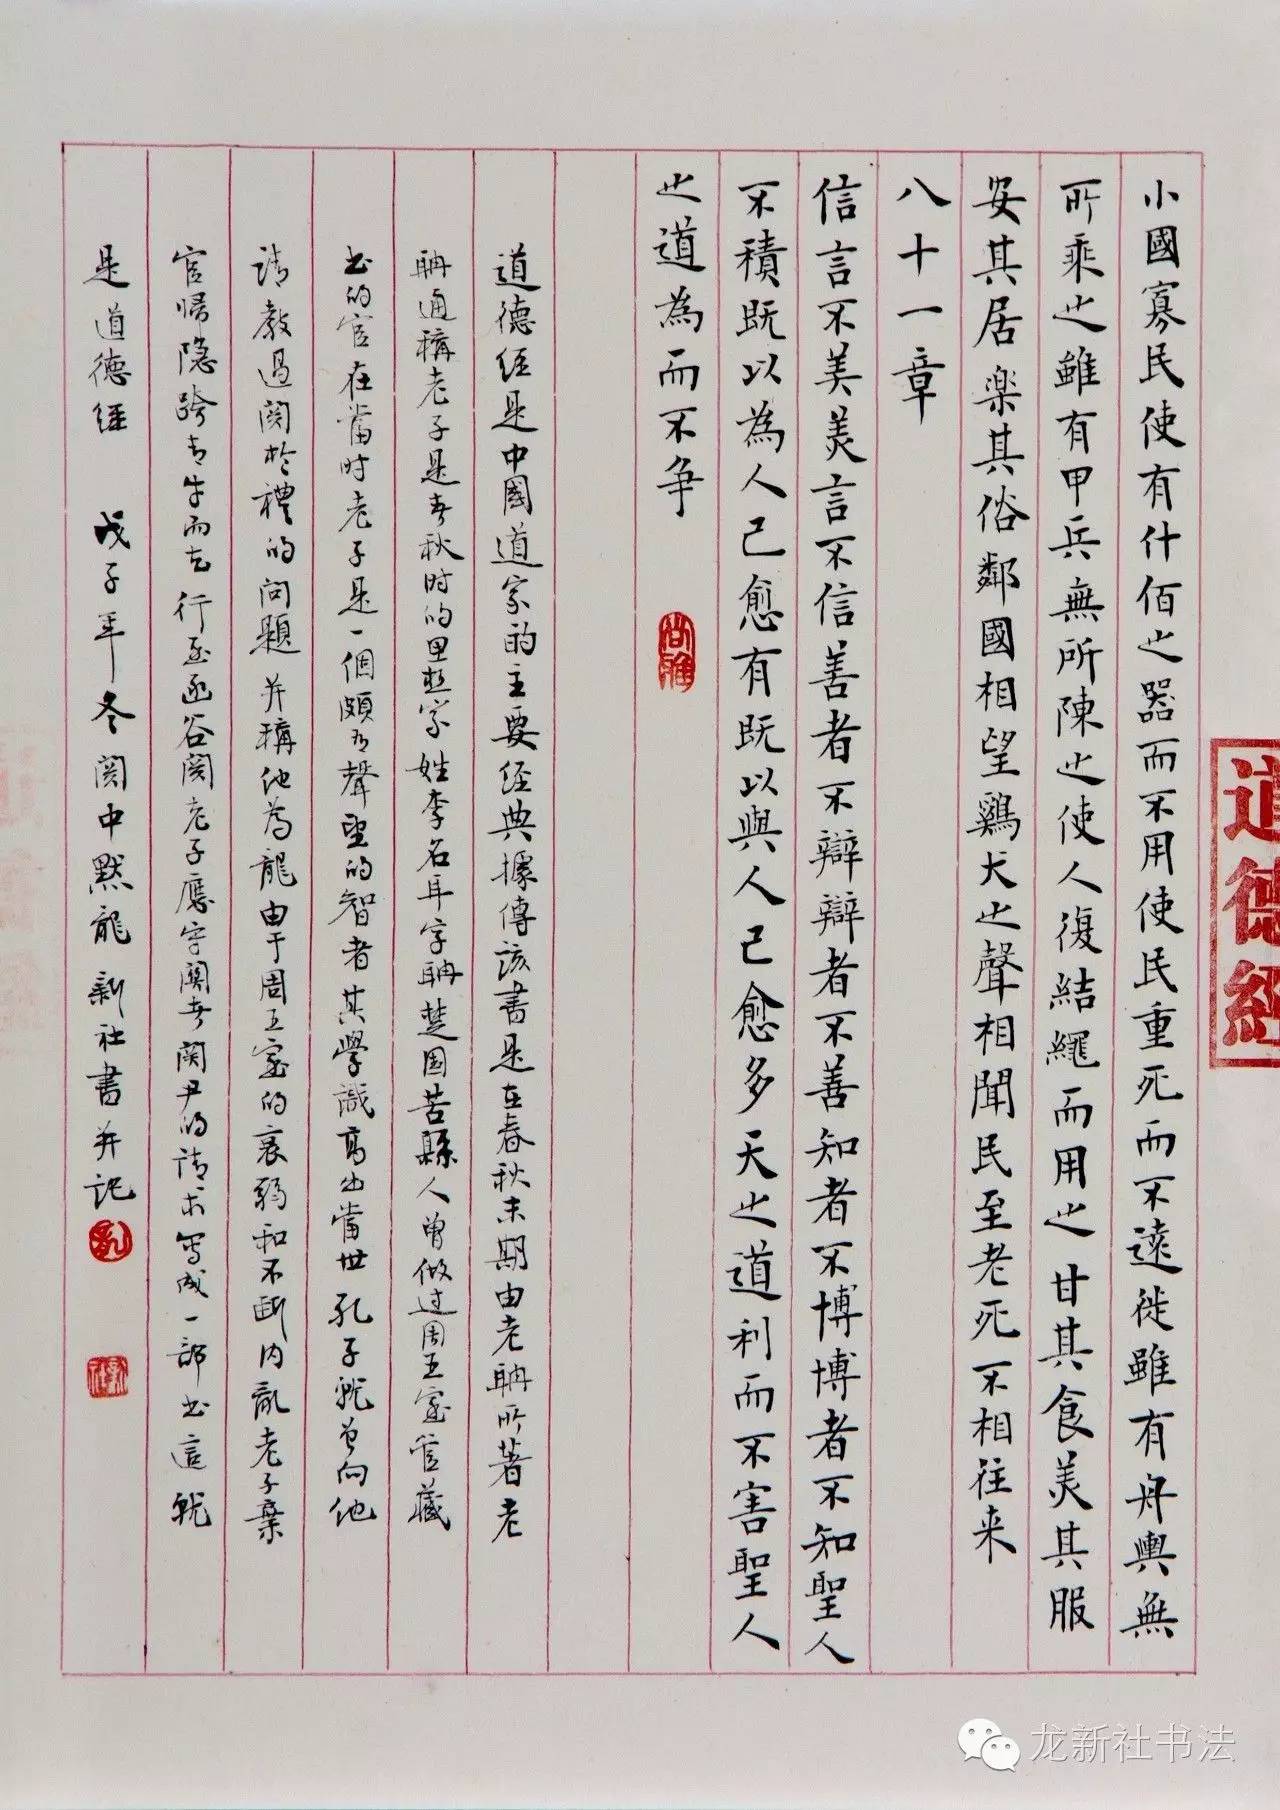 小國寡民使有什佰之器而不用使民重死而不遠徙雖有舟輿無
所乘之雖有甲兵無所陳之使人復結繩而用之甘其食美其服
安其居楽其俗鄰國相望鷄犬之聲相聞民至老死不相往来
八十一章
信言不美美言不信善者不辯辯者不善知者不博博者不知聖人
不積既以為人己愈有既以與人己愈多天之道利而不害聖人
之道為而不争
道德经是中國道家的主要经典據傳該書是在春秋末期由老聃所著老
聃通稱老子是春秋时的思想家姓李名耳字聃楚国苦縣人曾做过周王室管藏
书的官在當时老子是一個頗有聲望的智者其學識高出當世孔子就曾向他
请教過関於禮的问題并稱他為龍由于周王室的衰弱和不断内亂老子棄
官帰隐跨青牛而去行至函谷関老子應守関者関尹的请求写成一部书這就
是道德経 戊子年冬関中黙龍新社書并记
道德經
龙新社书法